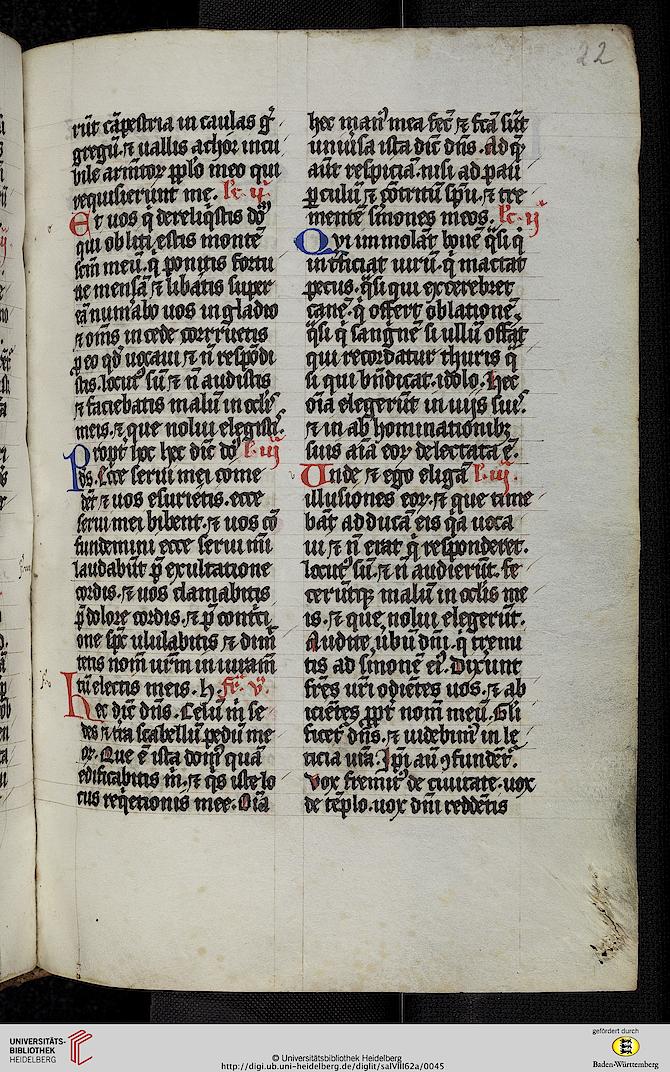 22
rūt cāpestria in caulas gͬ
gregū. ⁊ uallis achor in cu
bile armētoꝝ pplo meo qui
requisierunt me. lc. ij.
Et uos q̇ dereliqstis do
qui obliti estis montē
scm̄ meū. q̇ ponitis fortu
ne mensā ⁊ libatis super
eā numabo uos in gladio
⁊ om̄s in cede corruetis
ꝑ eo qd̄ uocaui ⁊ n̄ respōdi
stis. locutꝰ sū ⁊ n̄ audistis
⁊ faciebatis malū in oclis
meis. ⁊ que nolui elegistis.
Propt̄ hoc hec dic̄ do l. iij
ds. Ecce serui mei come
dēt ⁊ uos esurietis. ecce
serui mei bibent. ⁊ uos cō
fundemini ecce serui mī
laudabūt p̄ exultatione
cordis. ⁊ uos clamabitis
p̄ dolore cordis. ⁊ p̄ contⁱci
one spc̄ ululabitis ⁊ dimi
tetis nom̄ urm̄ in iuram̄
tū electis meis. h. fr̄. v.
Hec dic̄ dn̄s. Celū m̄ se
des ⁊ tr̄a scabellū pedū me
oꝝ. Que ē ista domꝰ quā
edificabitis m̄. ⁊ qs̄ iste lo
cus reqetionis mee. Oīa
hec manꝰ mea fec̄ ⁊ fc̄a sūt
uniūsa ista dic̄ dn̄s. Ad q̄
aūt respiciā. nisi ad pau
ꝑculū ⁊ cōtritū spū. ⁊ tre
mentē s̄mones meos. lc. ij
Qui immolat bouē q̄si q̇
int̄ficiat uirū. q̇ mactat
pecus. q̄si qui excerebret
canē. q̇ offert oblationē.
q̄si q̇ sangnē suillū offāt
qui recordatur thuris q̄
si qui bn̄dicat. idolo. Hec
oīa elegerūt in uijs suis.
⁊ in abhominationibꝫ
suis aīa eoꝝ delectata ē.
Unde ⁊ ego eligā l. iij.
illusiones eoꝝ. ⁊ que time
bāt adducā eis qa uoca
ui ⁊ n̄ erat q̇ responderet.
locutꝰ sū. ⁊ n̄ audierūt. fe
cerūtqꝫ malū in oclis me
is. ⁊ que nolui elegerūt.
Audite ūbū dn̄i. q̇ tremi
tis ad s̄monē eiꝰ. Dixunt
fr̄es ur̄i odiētes uos. ⁊ ab
iciētes ꝓpt̄ nom̄ meū. Gli
ficet̄ dn̄s. ⁊ uidebimꝰ in le
ticia ur̄a. Ipi aū ꝯfundent̄.
Vox fremitꝰ de ciuitate. uox
de tēplo. uox dn̄i reddētis
UNIVERSITÄTS-
BIBLIOTHEK
HEIDELBERG
© Universitätsbibliothek Heidelberg
http://digi.ub.uni-heidelberg.de/diglit/salVIII62a/0045
gefördert durch
Baden-Württemberg